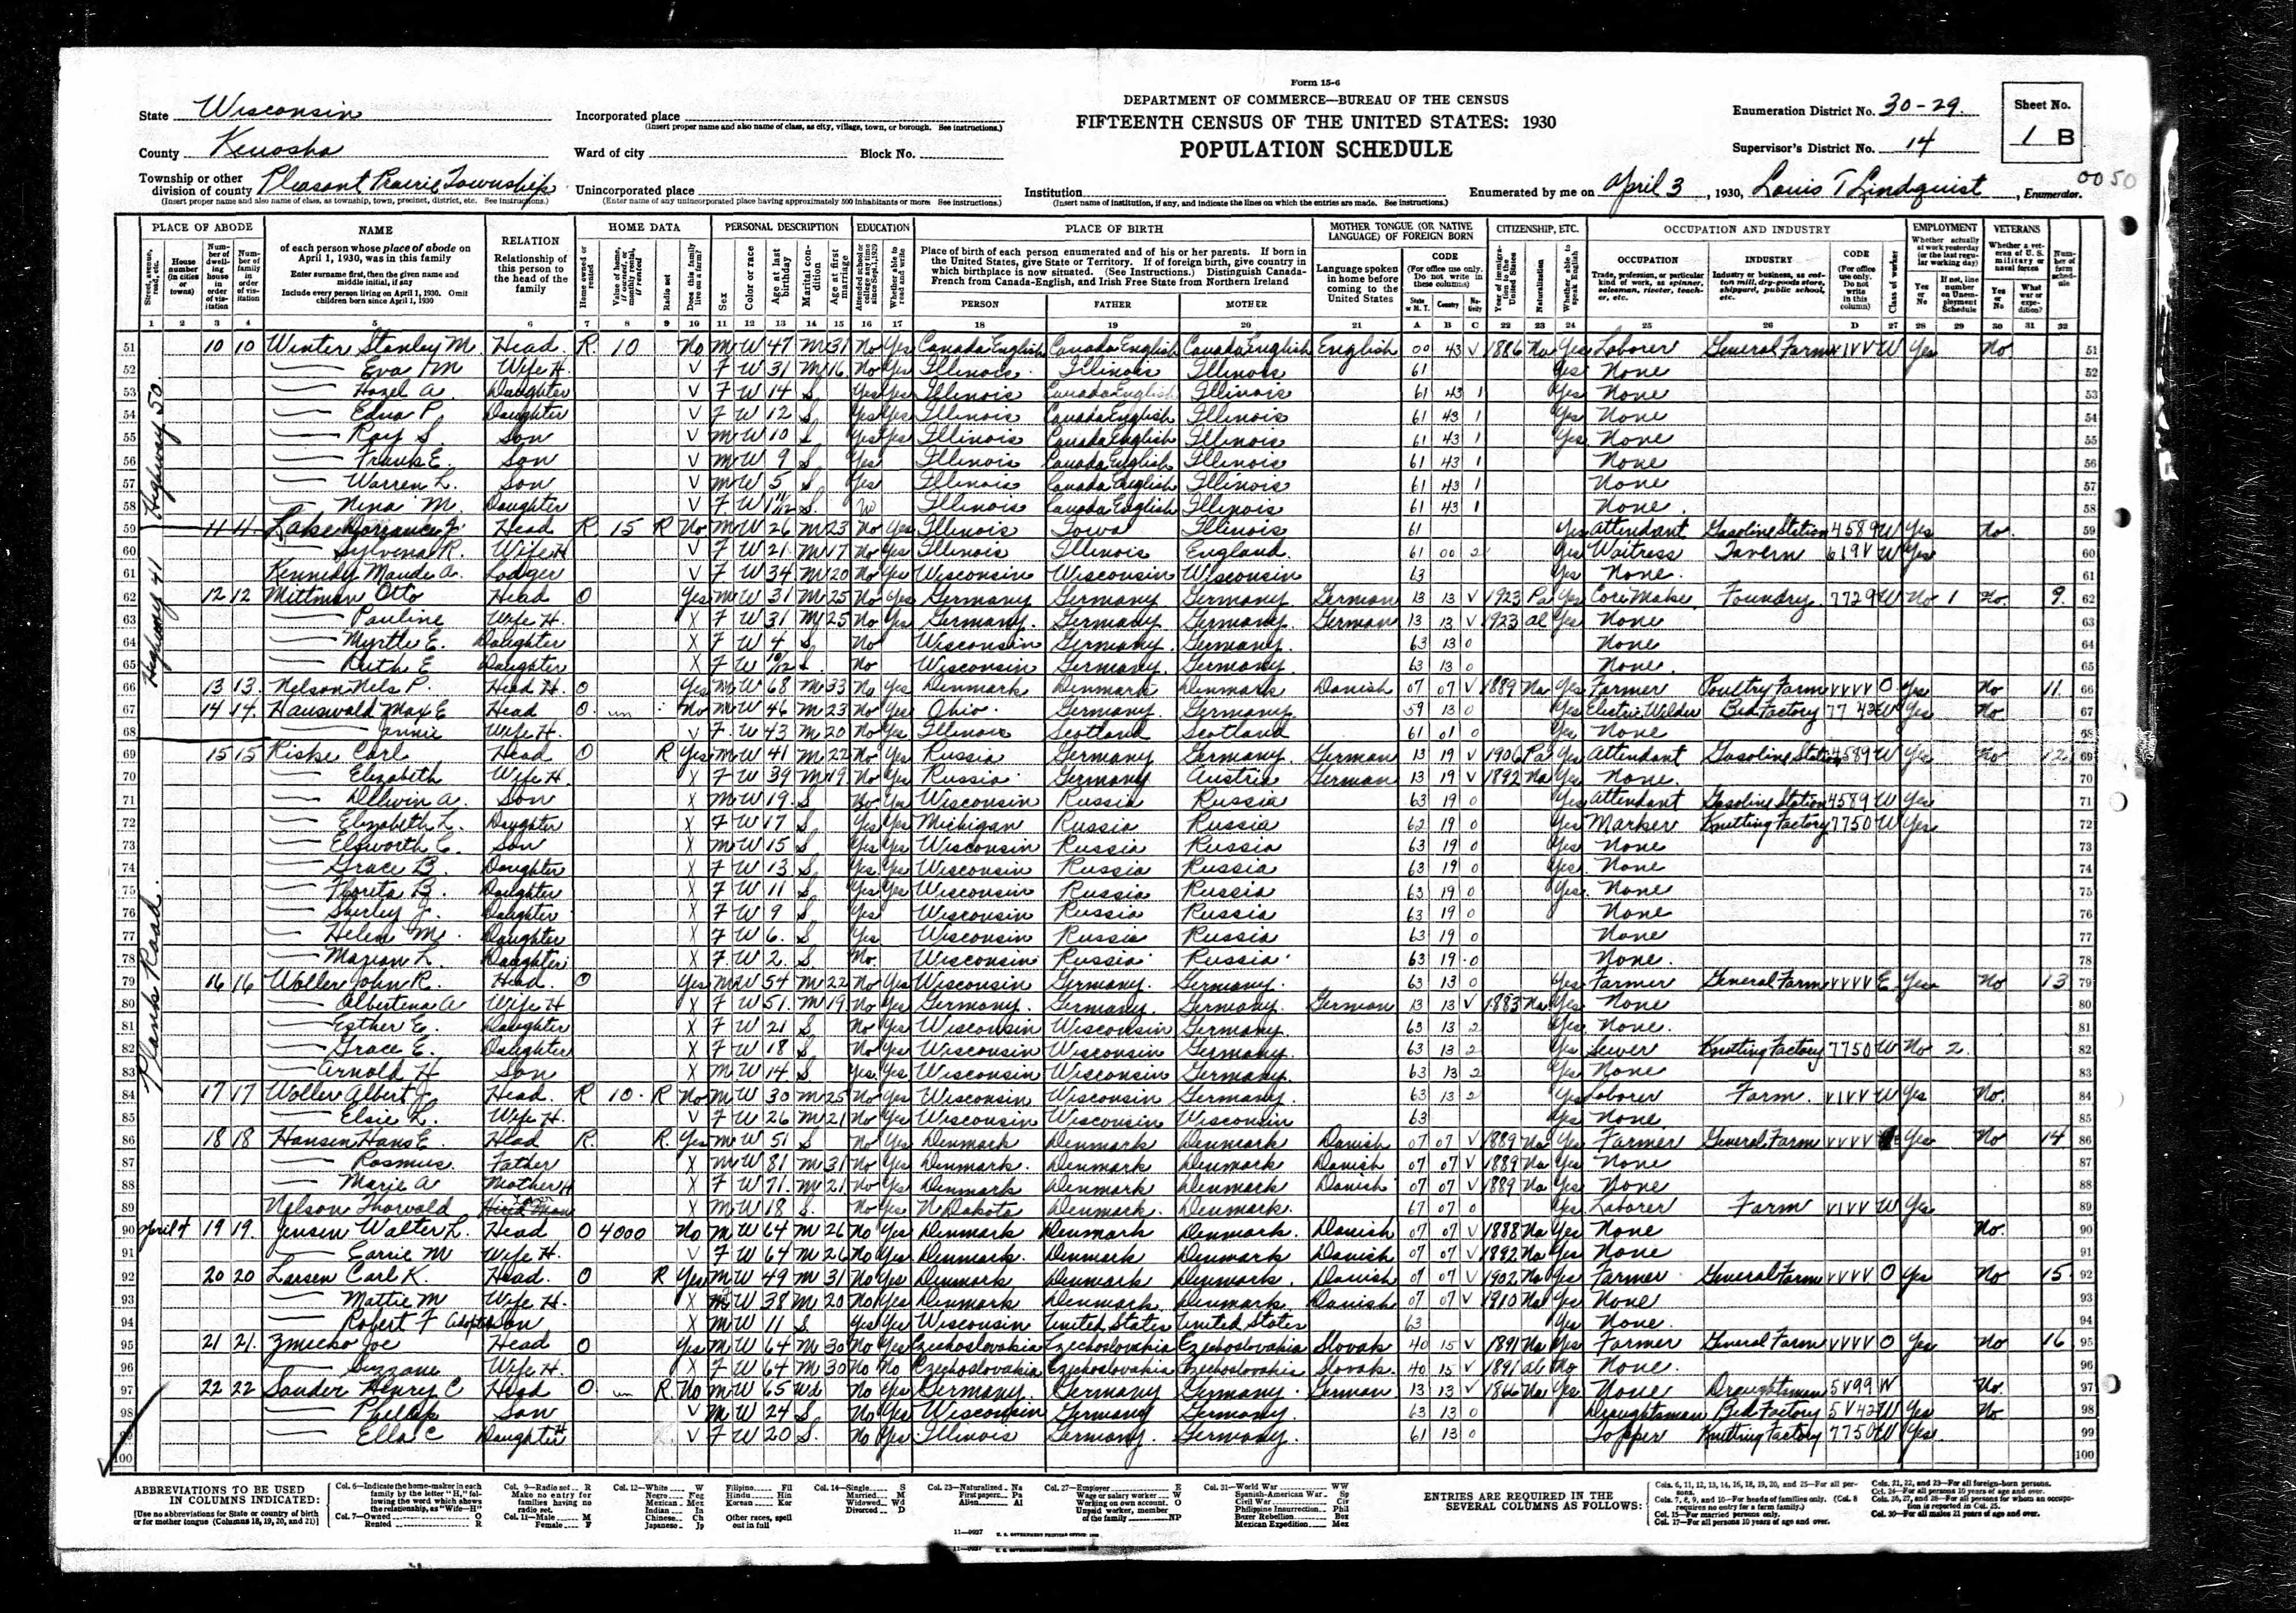 Form 15-6
DEPARTMENT OF COMMERCE—BUREAU OF THE CENSUS
FIFTEENTH CENSUS OF THE UNITED STATES: 1930
POPULATION SCHEDULE
State Wisconsin
County Kenosha
Township or other division of county Pleasant Prairie Township
(Insert proper name and also name of class, as township, town, precinct, district, etc. See instructions.)
Incorporated place
(Insert proper name and also name of class, as city, village, town, or borough. See instructions.)
Ward of city Block No.
Unincorporated place
(Enter name of any unincorporated place having approximately 500 inhabitants or more. See instructions.)
Institution
(Insert name of institution, if any, and indicate the lines on which the entries are made. See instructions.)
Enumeration District No. 30-29
Supervisor's District No. 14
Sheet No. 1 B
0050
Enumerated by me on April 3, 1930, Louis T Lindquist, Enumerator.
PLACE OF ABODE NAME RELATION HOME DATA PERSONAL DESCRIPTION EDUCATION PLACE OF BIRTH MOTHER TONGUE (OR NATIVE LANGUAGE) OF FOREIGN BORN CITIZENSHIP, ETC. OCCUPATION AND INDUSTRY EMPLOYMENT VETERANS
Highway 50
Highway 41
Plank Road
51 10 10 Winter Stanley M. Head R 10 No M W 47 M 31 No Yes Canada English Canada English Canada English English 00 43 V 1886 Na Yes Laborer General Farm VIVV W Yes No 51
52 Eva M Wife H. V F W 31 M 16 No Yes Illinois Illinois Illinois 61 Yes None 52
53 Hazel A. Daughter V F W 14 S Yes Yes Illinois Canada English Illinois 61 43 1 Yes None 53
54 Edna P. Daughter V F W 12 S Yes Yes Illinois Canada English Illinois 61 43 1 Yes None 54
55 Roy S. Son V M W 10 S Yes Yes Illinois Canada English Illinois 61 43 1 Yes None 55
56 Frank E. Son V M W 9 S Yes Illinois Canada English Illinois 61 43 1 None 56
57 Warren L. Son V M W 5 S Yes Illinois Canada English Illinois 61 43 1 None 57
58 Nina M. Daughter V F W 11/12 S. Illinois Canada English Illinois 61 43 1 None. 58
59 11 11 Lake J. Head R 15 R No M W 26 M 23 No Yes Illinois Iowa Illinois 61 Yes Attendant Gasoline Station 4589 W Yes No. 59
60 Sylvena R. Wife H V F W 21 M 17 No Yes Illinois Illinois England. 61 00 2 Yes Waitress Tavern 619V W Yes 60
61 Kennedy Maude A. Lodger V F W 34 M 20 No Yes Wisconsin Wisconsin Wisconsin 63 Yes None. 61
62 12 12 Mittman Otto Head O Yes M W 31 M 25 No Yes Germany Germany Germany German 13 13 V 1923 Pa Yes Core Maker Foundry 7729 W No 1 No. 9. 62
63 Pauline Wife H. X F W 31 M 25 No Yes Germany. Germany Germany. German 13 13 V 1923 Al Yes None 63
64 Myrtle E. Daughter X F W 4 S No Wisconsin Germany. Germany. 63 13 0 None 64
65 Ruth E Daughter X F W 10/12 S. No Wisconsin Germany. Germany 63 13 0 None. 65
66 13 13. Nelson Nels P. Head H. O Yes M W 68 M 33 No Yes Denmark Denmark Denmark Danish 07 07 V 1889 Na Yes Farmer Poultry Farm VVVV O Yes No 11. 66
67 14 14. Hauswald Max E Head O. un No M W 46 M 23 No Yes Ohio Germany. Germany 59 13 0 Yes Electric Welder Bed Factory 77 43 W Yes No 67
68 Annie Wife H. V F W 43 M 20 No Yes Illinois Scotland Scotland 61 01 0 Yes None 68
69 15 15 Riske Carl Head O R Yes M W 41 M 22 No Yes Russia Germany Germany German 13 19 V 1906 Pa Yes Attendant Gasoline Station 4589 W Yes No 12 69
70 Elizabeth Wife H X F W 39 M 19 No Yes Russia Germany Austria German 13 19 V 1892 Na Yes None. 70
71 Delwin A. Son X M W 19 S No Yes Wisconsin Russia Russia 63 19 0 Yes Attendant Gasoline Station 4589 W Yes 71
72 Elizabeth L. Daughter X F W 17 S Yes Yes Michigan Russia Russia 62 19 0 Yes Marker Knitting Factory 7750 W Yes 72
73 Elsworth C. Son X M W 15 S Yes Yes Wisconsin Russia Russia 63 19 0 Yes None 73
74 Grace B. Daughter X F W 13 S Yes Yes Wisconsin Russia Russia 63 19 0 Yes None 74
75 Florita B. Daughter X F W 11 S Yes Yes Wisconsin Russia Russia 63 19 0 Yes. None 75
76 Shirley J. Daughter X F W 9 S Yes Wisconsin Russia Russia 63 19 0 None 76
77 Helen M. Daughter X F W 6. S Yes Wisconsin Russia Russia 63 19 0 None 77
78 Marion L. Daughter X F W 2. S No. Wisconsin Russia Russia 63 19 0 None. 78
79 16 16 Woller John R. Head. O Yes M W 54 M 22 No Yes Wisconsin Germany. Germany. 63 13 0 Yes Farmer General Farm VVVV E Yes No 13 79
80 Albertena A Wife H X F W 51. M 19 No Yes Germany. Germany. Germany. German 13 13 V 1883 Na. Yes None 80
81 Esther E. Daughter X F W 21 S No Yes Wisconsin Wisconsin Germany. 63 13 2 Yes None. 81
82 Grace E. Daughter X F W 18 S No Yes Wisconsin Wisconsin Germany. 63 13 2 Yes Sewer Knitting Factory 7750 W No 2. 82
83 Arnold H Son X M W 14 S Yes. Yes Wisconsin Wisconsin Germany. 63 13 2 Yes None 83
84 17 17 Woller Albert J. Head. R 10. R No M W 30 M 25 No Yes Wisconsin Wisconsin Germany. 63 13 2 Yes Laborer Farm. VIVV W Yes No. 84
85 Elsie L. Wife H. V F W 26 M 21 No Yes Wisconsin Wisconsin Wisconsin 63 Yes None. 85
86 18 18 Hansen Hans E. Head R. R. Yes M W 51 S No Yes Denmark Denmark Denmark Danish 07 07 V 1889 Na Yes Farmer General Farm VVVV Yes No 14 86
87 Rasmus Father X M W 81 M 31 No Yes Denmark. Denmark Denmark Danish 07 07 V 1889 Na Yes None 87
88 Marie A Mother H X F W 71. M 21 No Yes Denmark Denmark Denmark Danish 07 07 V 1889 Na Yes None 88
89 Nelson Thorvald Hired Man X M W 18 S. No Yes N Dakota Denmark. Denmark. 67 07 0 Yes Laborer Farm VIVV W Yes 89
90 April 4 19 19. Jensen Walter L. Head O 4000 No M W 64 M 26 No Yes Denmark Denmark Denmark. Danish 07 07 V 1888 Na Yes None No. 90
91 Carrie M Wife H. V F W 64 M 26 No Yes Denmark. Denmark Denmark Danish 07 07 V 1892 Na Yes None 91
92 20 20 Larsen Carl K. Head. O R Yes M W 49 M 31 No Yes Denmark Denmark Denmark. Danish 07 07 V 1902 Na Yes Farmer General Farm VVVV O Yes No 15 92
93 Mattie M Wife H. X W 38 M 20 No Yes Denmark Denmark Denmark Danish 07 07 V 1910 Na Yes None 93
94 Robert F Adopted Son X M W 11 S Yes Yes Wisconsin United States United States 63 Yes None. 94
95 21 21. Zmecko Joe Head O Yes M W 64 M 30 No Yes Czechoslovakia Czechoslovakia Czechoslovakia Slovak 40 15 V 1891 Na Yes Farmer General Farm VVVV O Yes No 16 95
96 Suzzane Wife H. X F W 64 M 30 No No Czechoslovakia Czechoslovakia Czechoslovakia Slovak. 40 15 V 1891 Al No None. 96
97 22 22 Sander Henry C Head O un R No M W 65 Wd No Yes Germany. Germany Germany German 13 13 V 1866 Na Yes None Draughtsman 5V99 W No. 97
98 Phillip Son V M W 24 S No Yes Wisconsin Germany Germany. 63 13 0 Draughtsman Bed Factory 5V42 W Yes No 98
99 Ella C Daughter H V F W 20 S. No Yes Illinois Germany. Germany. 61 13 0 Topper Knitting Factory 7750 W Yes 99
100 100
ABBREVIATIONS TO BE USED IN COLUMNS INDICATED:
[Use no abbreviations for State or country of birth or for mother tongue (Columns 18, 19, 20, and 21)]
ENTRIES ARE REQUIRED IN THE SEVERAL COLUMNS AS FOLLOWS: